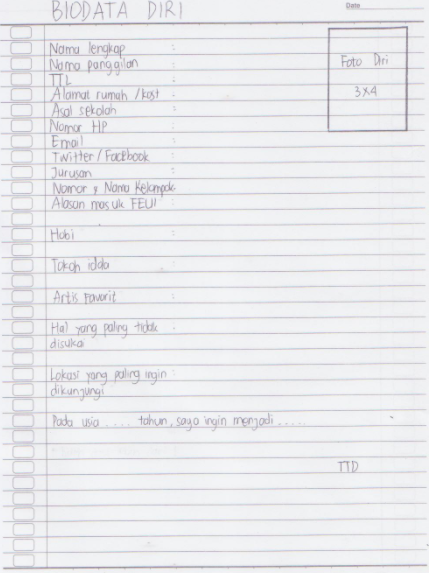 BIODATA DIRI
Date
Nama lengkap :
Nama panggilan :
Foto Diri
TTL :
Alamat rumah /kost :
3x4
Asal sekolah :
Nomor HP :
Email :
Twitter/Facebook :
Jurusan :
Nomor & Nama Kelompok
Alasan masuk FEUI :
Hobi :
Tokoh idola :
Artis Favorit :
Hal yang paling tidak :
disukai
Lokasi yang paling ingin :
dikunjungi
Pada usia .... tahun, saya ingin menjadi .....
TTD